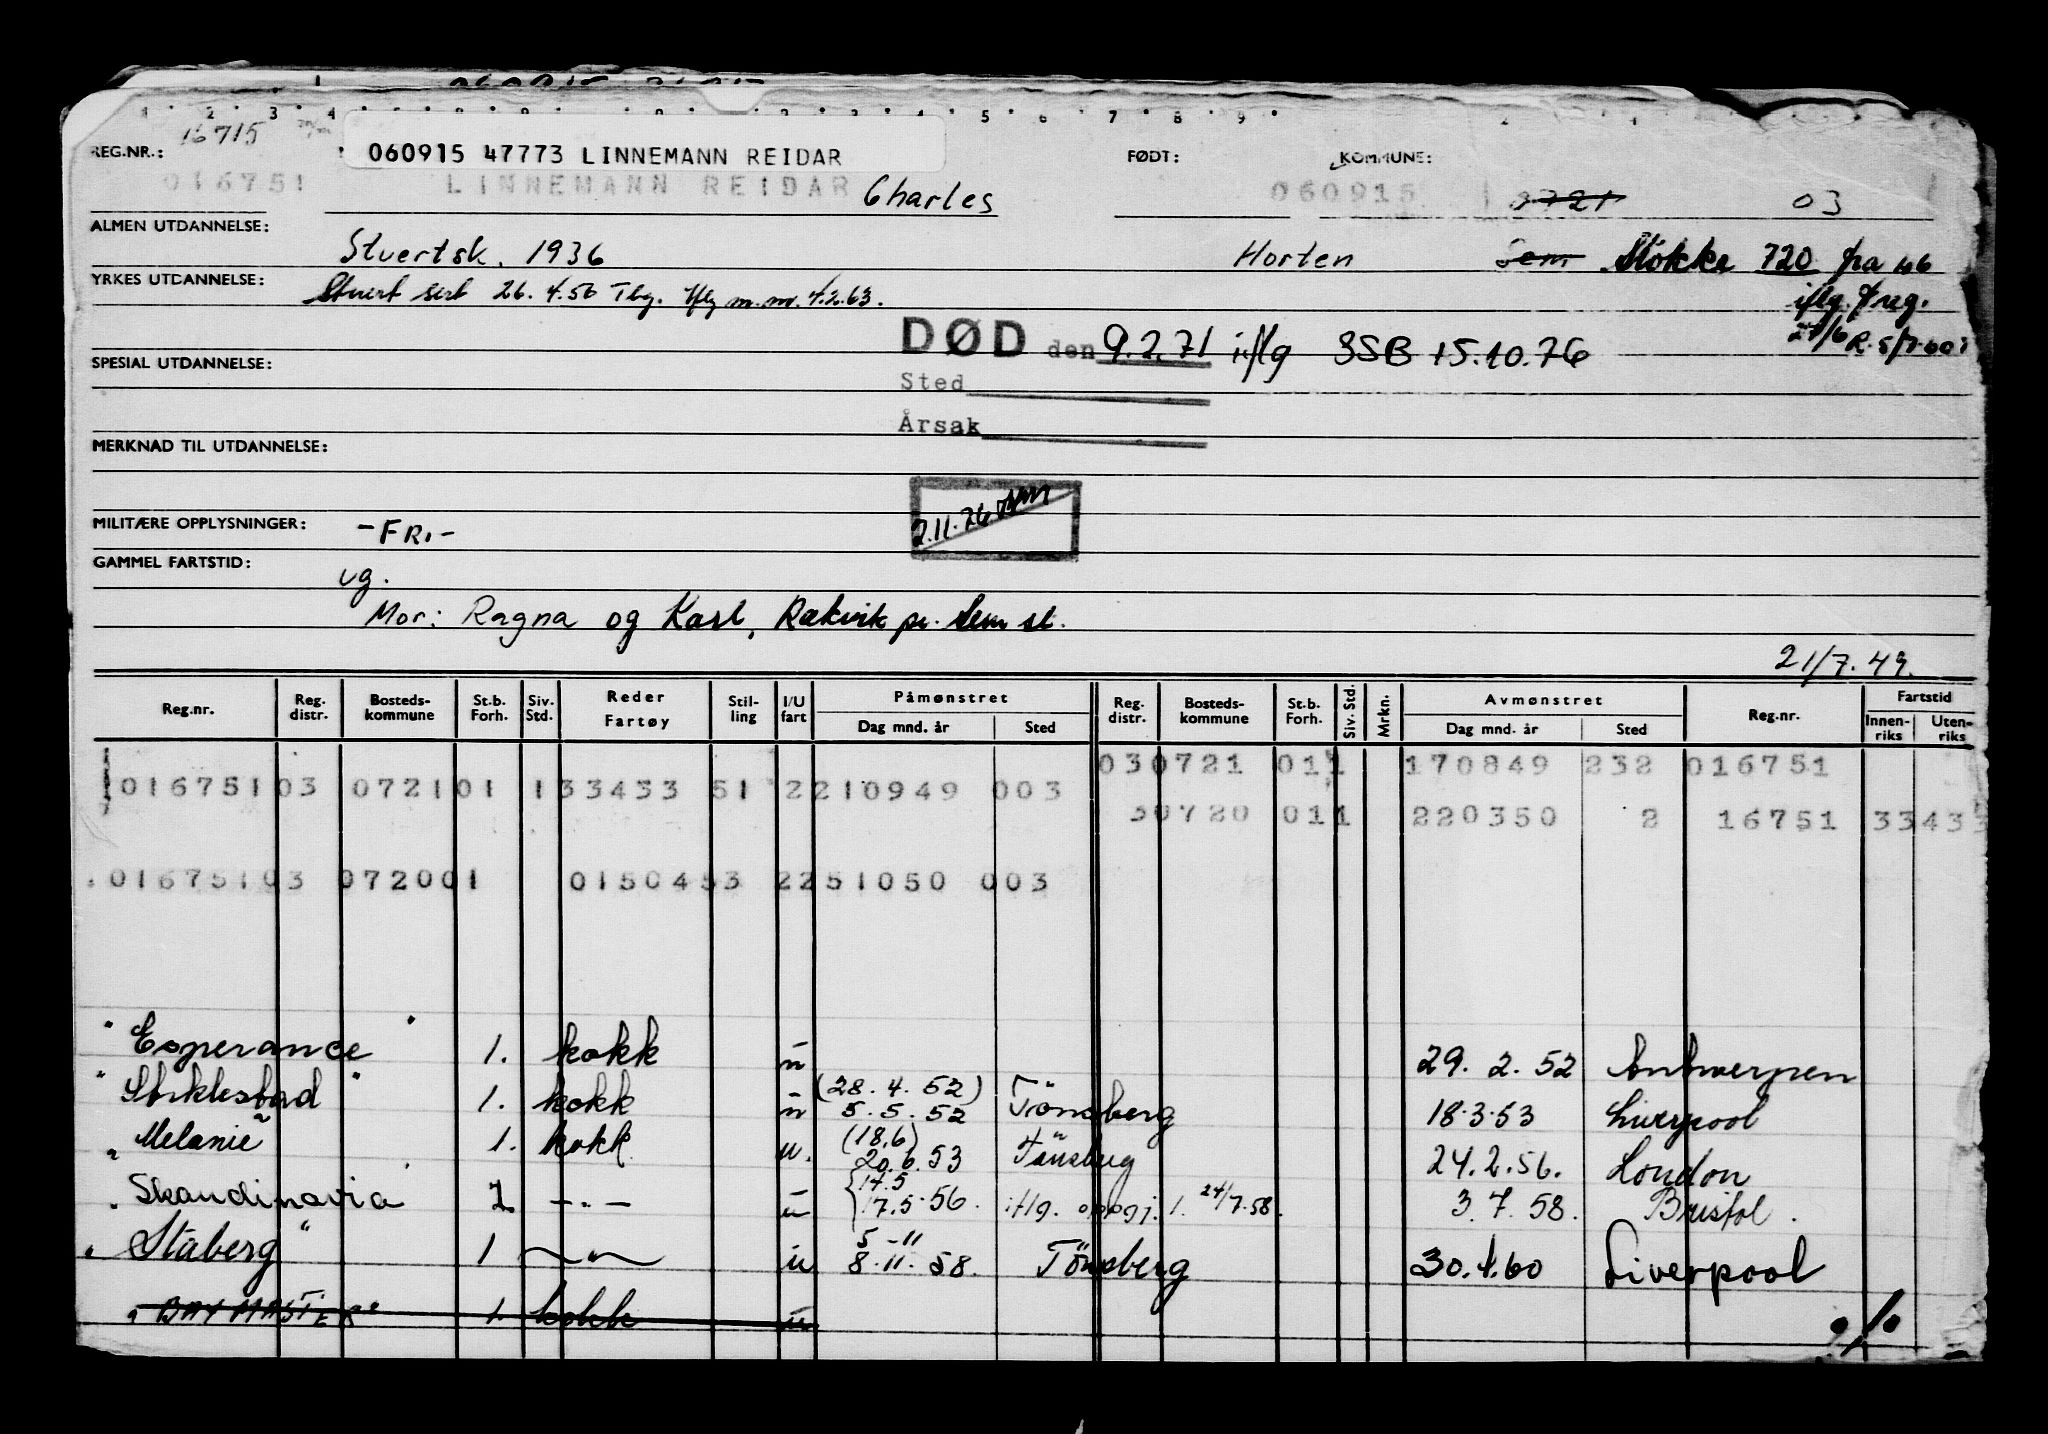 1 2 3 4 5 6 7 8 9
16715
REG.NR.: 060915 47773 LINNEMANN REIDAR FØDT: KOMMUNE:
016751 LINNEMANN REIDAR Charles 060915 0721 03
ALMEN UTDANNELSE:
Stuertsk. 1936 Horten Sem Stokke 720 fra 46
YRKES UTDANNELSE: Stuert sert 26.4.56 Tbg. iflg m.m. 4.2.63. iflg. freg.
DØD den 9.2.71 iflg SSB 15.10.76
SPESIAL UTDANNELSE: Sted
Årsak
MERKNAD TIL UTDANNELSE:
2.11.76
MILITÆRE OPPLYSNINGER: -FRI-
GAMMEL FARTSTID:
ug.
Mor: Ragna og Karl, Rakvik pr. Sem st.
21/7.49.
Reg.nr. Reg. distr. Bosteds-kommune St.b. Forh. Siv. Std. Reder Fartøy Stil-ling I/U fart Påmønstret Dag mnd. år Sted Reg. distr. Bosteds-kommune St.b. Forh. Siv. Std. Mrkn. Avmønstret Dag mnd. år Sted Reg.nr. Fartstid Innen-riks Uten-riks
030721 011 170849 232 016751
016751 03 072101 133433 51 2 210949 003
30720 011 220350 2 16751 33433
016751 03 072001 0150453 2251050 003
"Esperance" 1. kokk u 29. 2. 52 Antwerpen
"Stiklestad" 1. kokk u (28. 4. 52) 5. 5. 52 Tönsberg 18.3.53 Liverpool
"Melanie" 1. kokk u. (18.6) 20.6.53 Tönsberg 24.2.56. London
"Skandinavia 1 -"- u 14.5 17.5.56. iflg. oppgj. 1. 24/7.58. 3. 7. 58. Bristol.
"Staberg" 1 -"- u 5-11 8.11.58. Tönsberg 30.4.60 Liverpool
"BAY MASTER" 1. kokk u